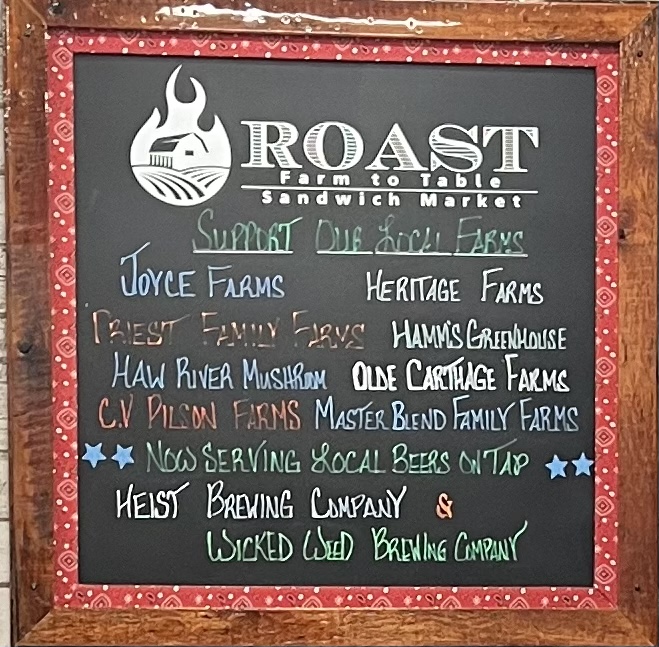 ROAST
Farm to Table
Sandwich Market
SUPPORT OUR LOCAL FARMS
JOYCE FARMS HERITAGE FARMS
PRIEST FAMILY FARMS HAMM'S GREENHOUSE
HAW RIVER MUSHROOM OLDE CARTHAGE FARMS
C.V PILSON FARMS MASTER BLEND FAMILY FARMS
NOW SERVING LOCAL BEERS ON TAP
HEIST BREWING COMPANY &
WICKED WEED BREWING COMPANY